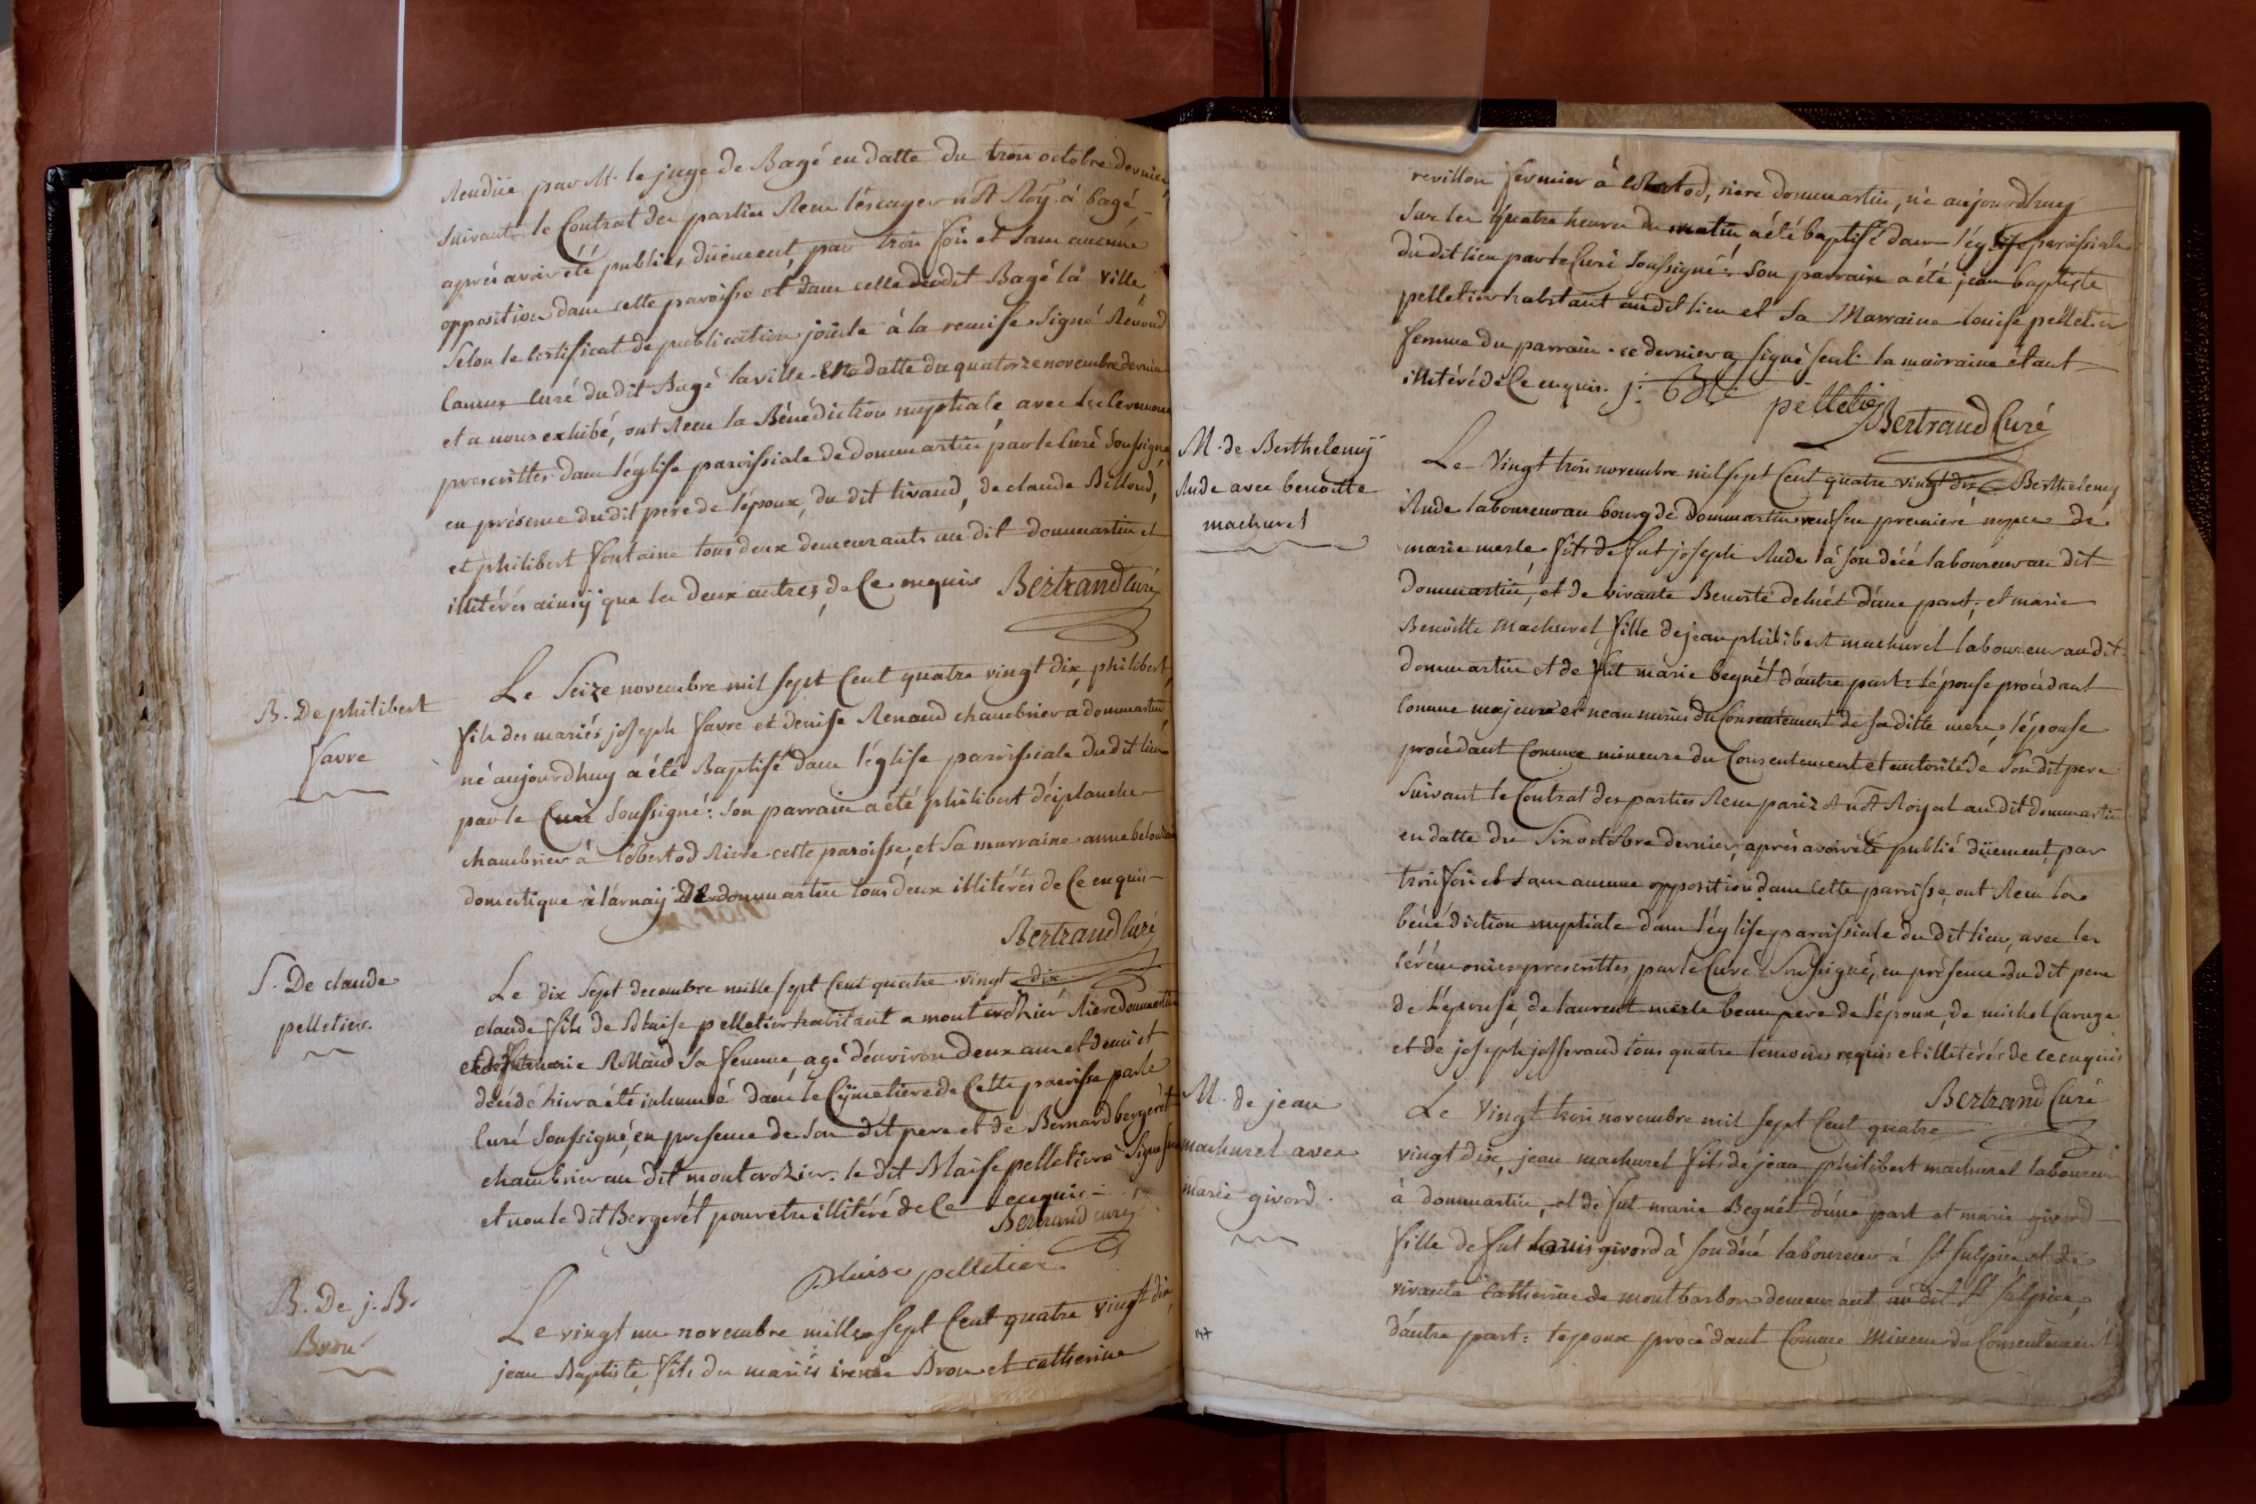 Rendüe par M. le juge de Bagé en datte du trois octobre dernier,
suivant le Contrat des parties Receu léscuyer nre Roy. à bagé,
aprés avoir été publiés düement, par trois fois et sans aucune
opposition dans cette paroisse et dans celle dudit Bagé la ville
selon le certificat de publication jointe à la remise signé Renoud
curé du dit Bagé la ville en datte du quatorze novembre dernier
et a nous exhibé, ont Receu la Bénédiction nuptiale, avec les ceremonies
prescrittes dans l'église paroissiale de dommartin par le Curé soussigné
en présence du dit pere de l'époux, du dit tivaud, de claude Billoud,
et philibert fontaine tous deux demeurants au dit dommartin et
illitérés ainsÿ que les deux autres, de Ce enquis Bertrand Curé
B. De philibert
favre
Le Seize novembre mil sept Cent quatre vingt dix, philibert,
fils des mariés joseph favre et denise Renaud chambrier a dommartin
né aujourdhuy a été Baptisé dans l'église paroissiale du dit lieu
par le Curé soussigné: son parrain a été philibert déiplanche
chambrier à lébertod Riere cette paroisse, et Sa marraine anne
domestique à lárnaÿ De dommartin tous deux illitérés de Ce enquis
Bertrand Curé
S. De claude
pelletier.
Le dix Sept decembre mille sept Cent quatre vingt dix
claude fils de Blaise pelletier habitant a montcrozier Riere dommartin
et de marie Rolland Sa femme, agé d'environ deux ans et demi et
décédé hier a été inhumé dans le Cÿmetiere de Cette paroisse par le
Curé soussigné, en presence de son dit pere et de Bernard bergerét
chambrier au dit montcrozier. le dit Blaise pelletier a Signé
et non le dit Bergerét pour etre illitéré de Ce enquis
Bertrand curé
Blaise pelletier
B. De j. B.
Bron
Le vingt un novembre mille sept Cent quatre vingt dix,
jean Baptiste, fils des mariés irenée Bron et catherine
revillon fermier à lébertod, riere dommartin, né aujourdhuy
Sur les quatre heures du matin, a été baptisé dans l'église paroissiale
du dit lieu par le Curé soussigné: Son parrain a été jean baptiste
pelletier habitant audit lieu et Sa Marraine louise pelletier
femme du parrain. ce dernier a signé seul: la marraine étant
illitéréde Ce enquis. j: bte
pelletier Bertrand Curé
M. de Berthelemÿ
Rude avec benoitte
machurel
Le Vingt trois novembre mil sept Cent quatre vingt dix Berthelemÿ
Rude laboureur au bourg de dommartin veuf en premiere nopces de
marie merle, fils de fut joseph Rude à son décé laboureur au dit
Dommartin, et de vivante Benoite d'une part, et marie
Benoitte machurel fille de jean philibert machurel laboureur audit
dommartin et de fut marie begnét d'autre part: lépouse procédant
comme majeure et neanmoins du Consentement de sa ditte mere, lépouse
procédant Comme mineure du Consentement et autorité de Son dit pere
Suivant le Contrat des parties Receu pariz nre Roÿal au dit dommartin
en datte du Six octobre dernier, aprés avoir été publié düement, par
trois fois et sans aucune opposition dans cette paroisse, ont Receu la
bénédiction nuptiale dans l'église paroissiale du dit lieu, avec les
cérémonies prescrittes par le Curé soussigné, en présence du dit pere
de l'épouse, de laurent merle beaupere de l'époux, de michel Caruge
et de joseph josserand tous quatre temoins requis et illitérés de ce enquis
Bertrand Curé
M. de jean
machurel avec
marie givord.
Le Vingt trois novembre mil sept Cent quatre
vingt dix, jean machurel fils de jean philibert machurel laboureur
à dommartin, et de fut marie Begnét d'une part et marie givord
fille de fut Louis givord à son décé laboureur à St Sulpice et de
vivante Catherine de montbarbon demeurant au dit St Sulpice,
d'autre part: lepoux procédant Comme Mineur du Consentement
147